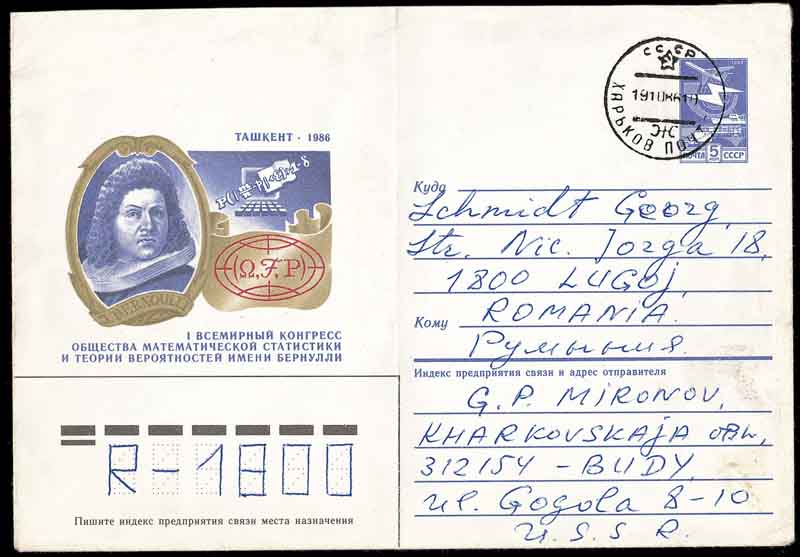 ТАШКЕНТ · 1986
BERNOULLI
(Ω, ℱ, P)
I ВСЕМИРНЫЙ КОНГРЕСС
ОБЩЕСТВА МАТЕМАТИЧЕСКОЙ СТАТИСТИКИ
И ТЕОРИИ ВЕРОЯТНОСТЕЙ ИМЕНИ БЕРНУЛЛИ
R-1800
Пишите индекс предприятия связи места назначения
СССР
ХАРЬКОВ ПОЧТ
ПОЧТА 5 СССР
Куда
Schmidt Georg,
Str. Nic. Jorga 18,
1800 LUGOJ,
ROMANIA.
Кому
Румыния.
Индекс предприятия связи и адрес отправителя
G. P. MIRONOV,
KHARKOVSKAJA обл,
312154 - BUDY,
ul. Gogola 8-10
U. S. S. R.